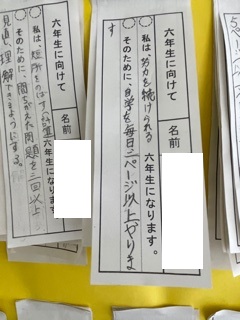 六年生に向けて 名前
◎私は、努力を続けられる六年生になります。
◎そのために、自学を毎日二ページ以上やりま
す
六年生に向けて 名前
◎私は、短所をのばす 六年生になります。
◎そのために、間ちがえた問題を三回以上
見直し理解できるようにする。